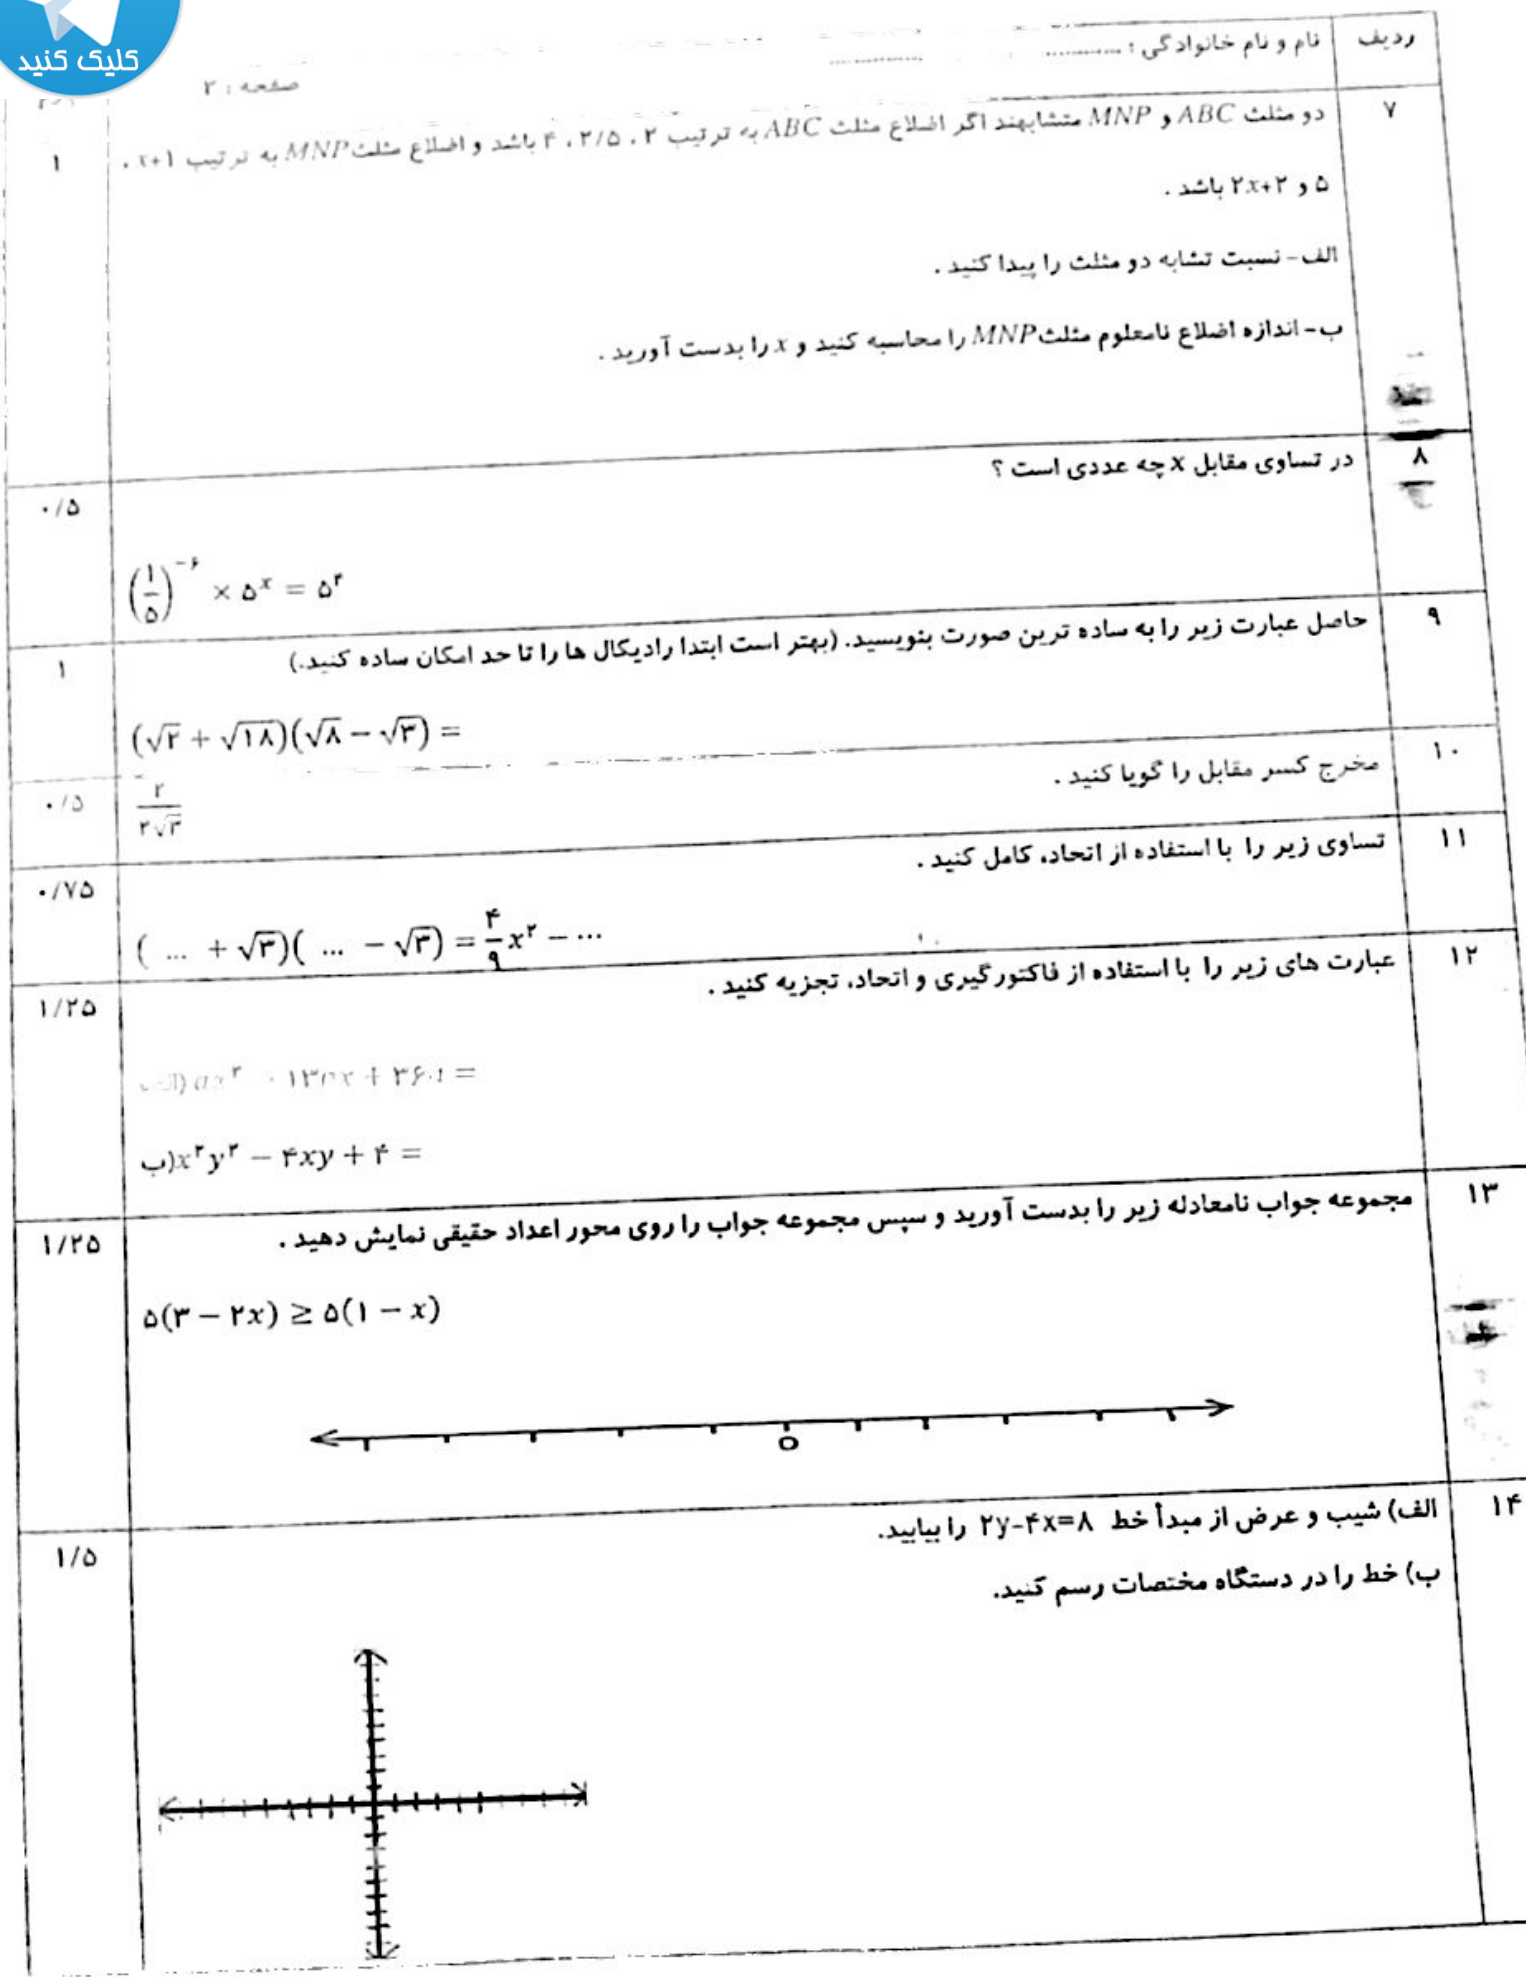 کلیک کنید
ردیف
نام و نام خانوادگی : ............ ............
صفحه : ۲
۷
دو مثلث ABC و MNP متشابهند اگر اضلاع مثلث ABC به ترتیب ۲ ، ۲/۵ ، ۴ باشد و اضلاع مثلث MNP به ترتیب x+۱ ،
۱
۵ و ۲x+۲ باشد .
الف- نسبت تشابه دو مثلث را پیدا کنید .
ب- اندازه اضلاع نامعلوم مثلث MNP را محاسبه کنید و x را بدست آورید .
۸
در تساوی مقابل x چه عددی است ؟
۰/۵
(۱/۵)^{-۶} × ۵^x = ۵^۳
۹
حاصل عبارت زیر را به ساده ترین صورت بنویسید. (بهتر است ابتدا رادیکال ها را تا حد امکان ساده کنید.)
۱
(√۲ + √۱۸)(√۸ − √۳) =
۱۰
مخرج کسر مقابل را گویا کنید .
۰/۵
۲/۳√۳
۱۱
تساوی زیر را با استفاده از اتحاد، کامل کنید .
۰/۷۵
( ... + √۳)( ... − √۳) = ۴/۹ x^۲ − ...
۱۲
عبارت های زیر را با استفاده از فاکتورگیری و اتحاد، تجزیه کنید .
۱/۲۵
الف) ax^۲ − ۱۳ax + ۳۶a =
ب) x^۲y^۲ − ۴xy + ۴ =
۱۳
مجموعه جواب نامعادله زیر را بدست آورید و سپس مجموعه جواب را روی محور اعداد حقیقی نمایش دهید .
۱/۲۵
۵(۳ − ۲x) ≥ ۵(۱ − x)
0
۱۴
الف) شیب و عرض از مبدأ خط ۲y-۴x=۸ را بیابید.
۱/۵
ب) خط را در دستگاه مختصات رسم کنید.